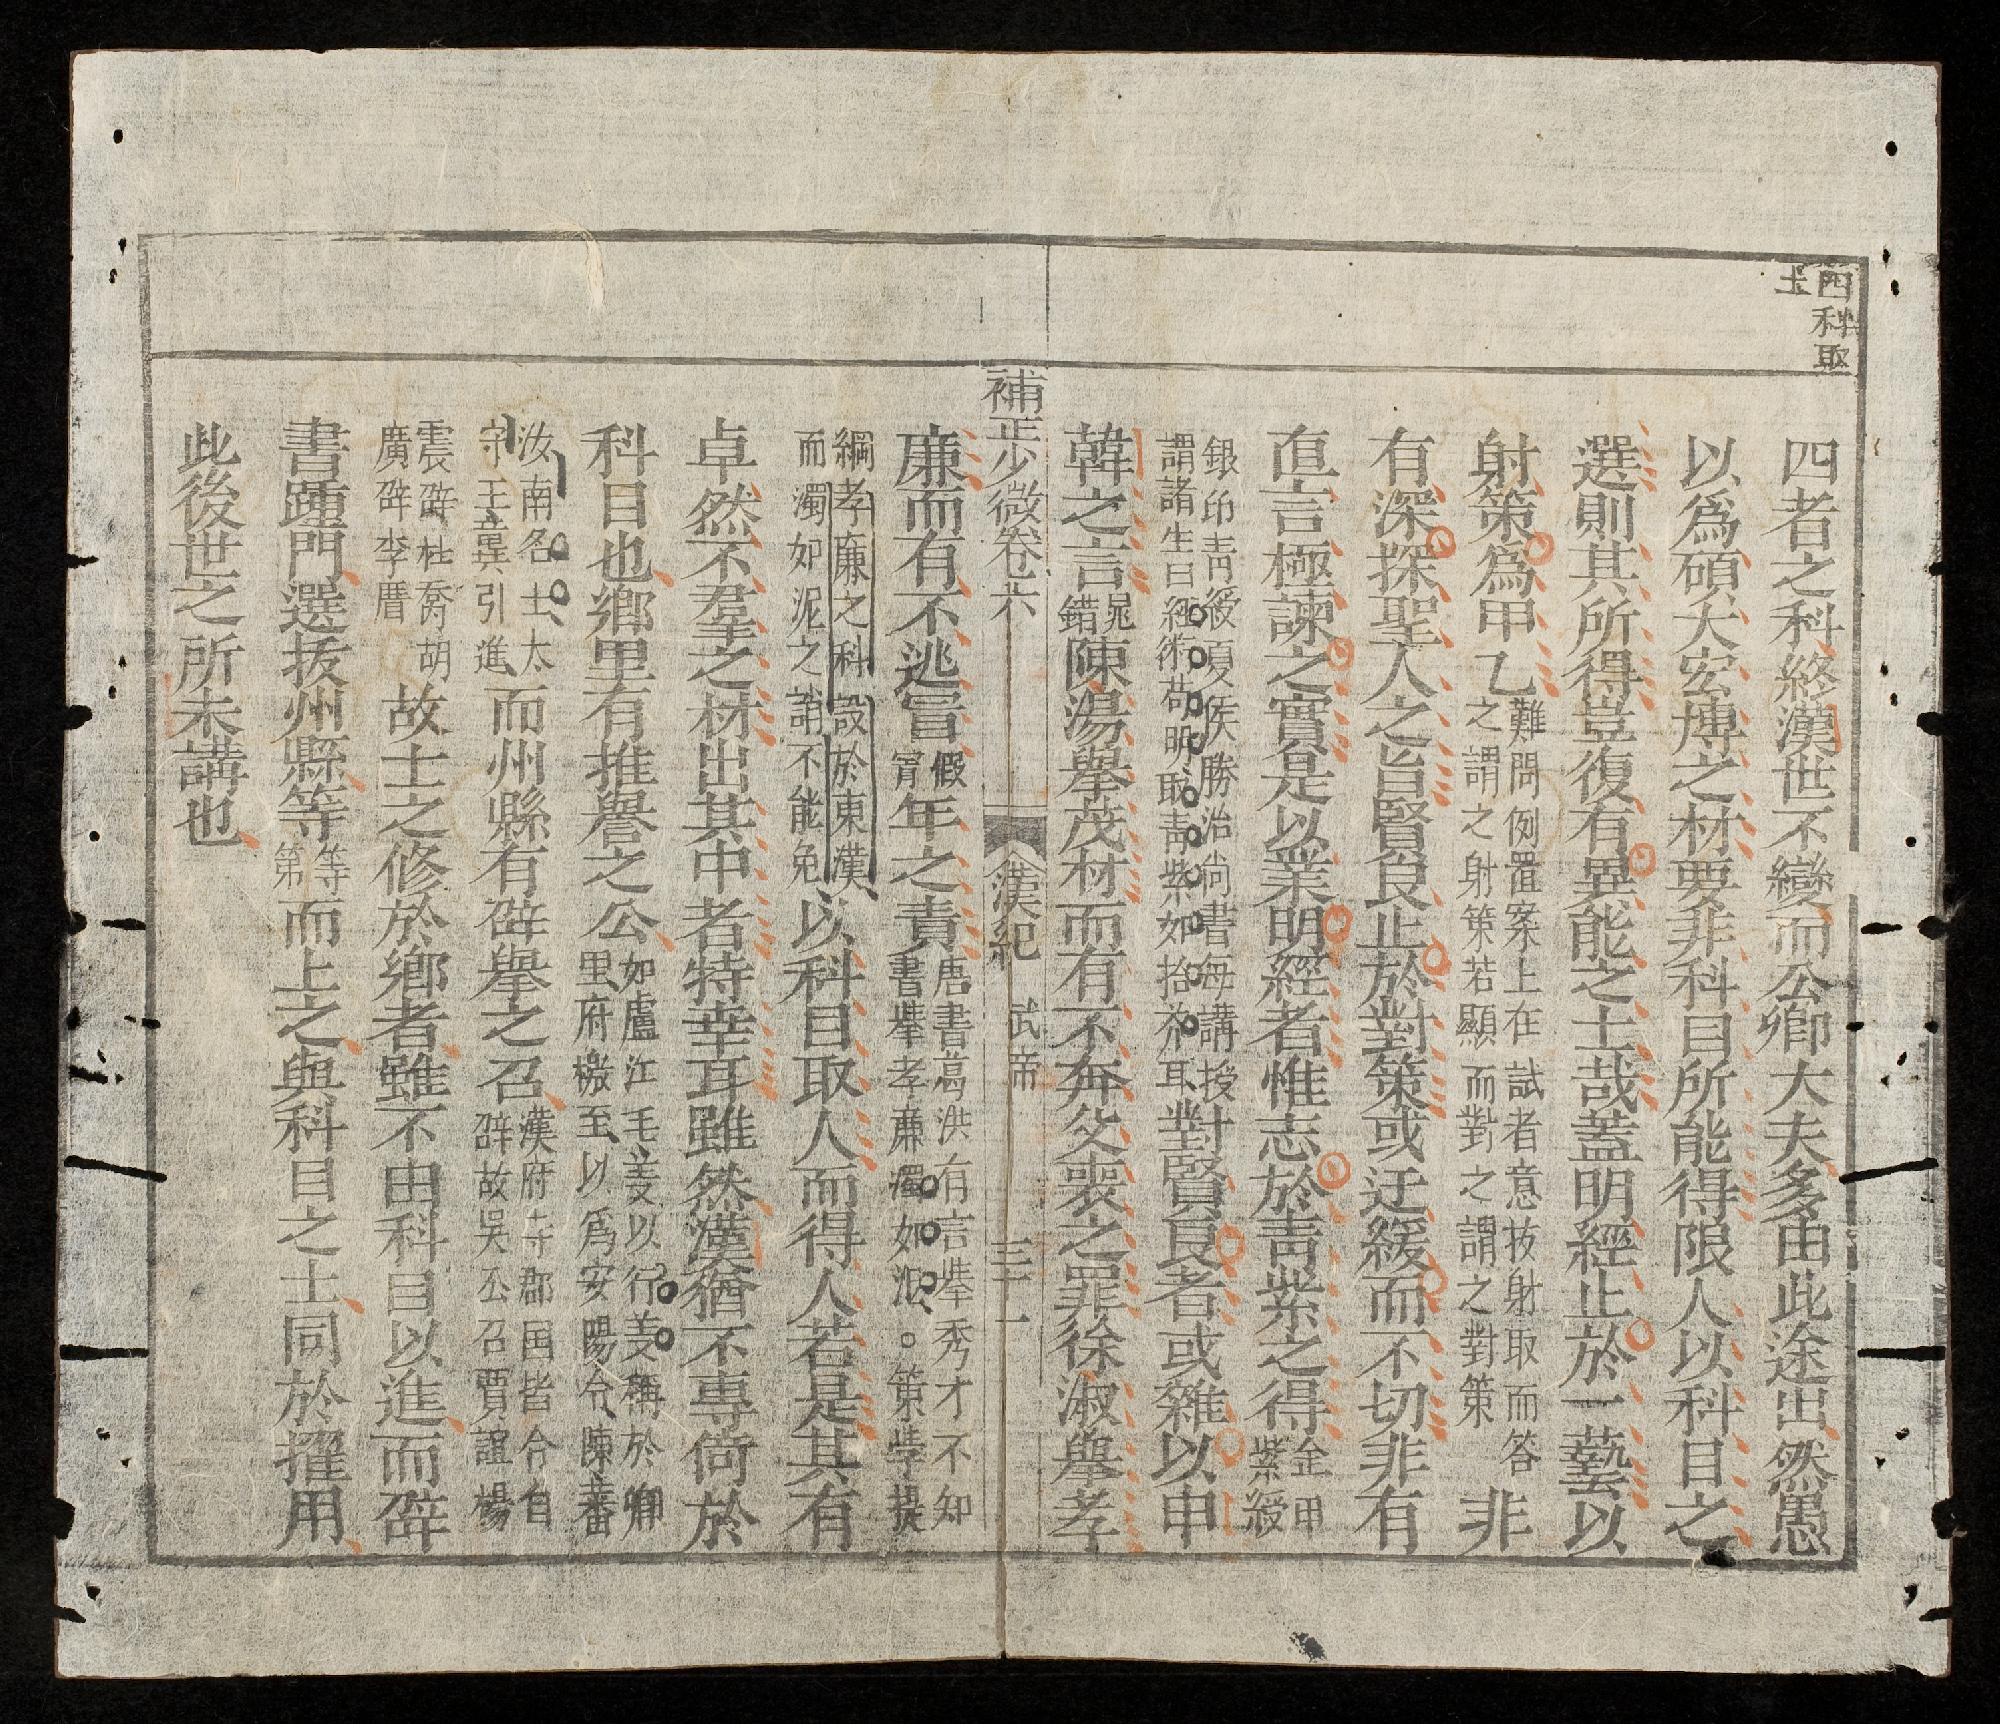 四科取
士
四者之科終漢世不變而公卿大夫多由此途出然愚
以爲碩大宏博之材要非科目所能得限人以科目之
選則其所得豈復有異能之士哉蓋明經止於一藝以
射策爲甲乙難問例置案上在試者意投射取而答之謂之射策若顯而對之謂之對策非
有深探聖人之旨賢良止於對策或迂緩而不切非有
直言極諫之實是以業明經者惟志於靑紫之得金甲紫綬
銀印靑綬夏侯勝治尙書每講授謂諸生曰經術苟明取靑紫如拾芥耳對賢良者或雜以申
韓之言晁錯陳湯擧茂材而有不奔父喪之罪徐淑擧孝
補正少微卷六 漢紀 武帝 三十一
廉而有不逃冒假冒年之責唐書葛洪有言擧秀才不知書擧孝廉濁如泥。策學提
綱孝廉之科設於東漢而濁如泥之誚不能免以科目取人而得人若是其有
卓然不羣之材出其中者特幸耳雖然漢猶不專倚於
科目也鄕里有推譽之公如廬江毛義以行義稱於鄕里府檄至以爲安陽令陳蕃
汝南名士太守王龔引進而州縣有辟擧之召漢府寺郡国皆令自辟故吳公召賈誼楊
震辟杜喬胡廣辟李厝故士之修於鄕者雖不由科目以進而辟
書踵門選拔州縣等等第而上之與科目之士同於擢用
此後世之所未講也